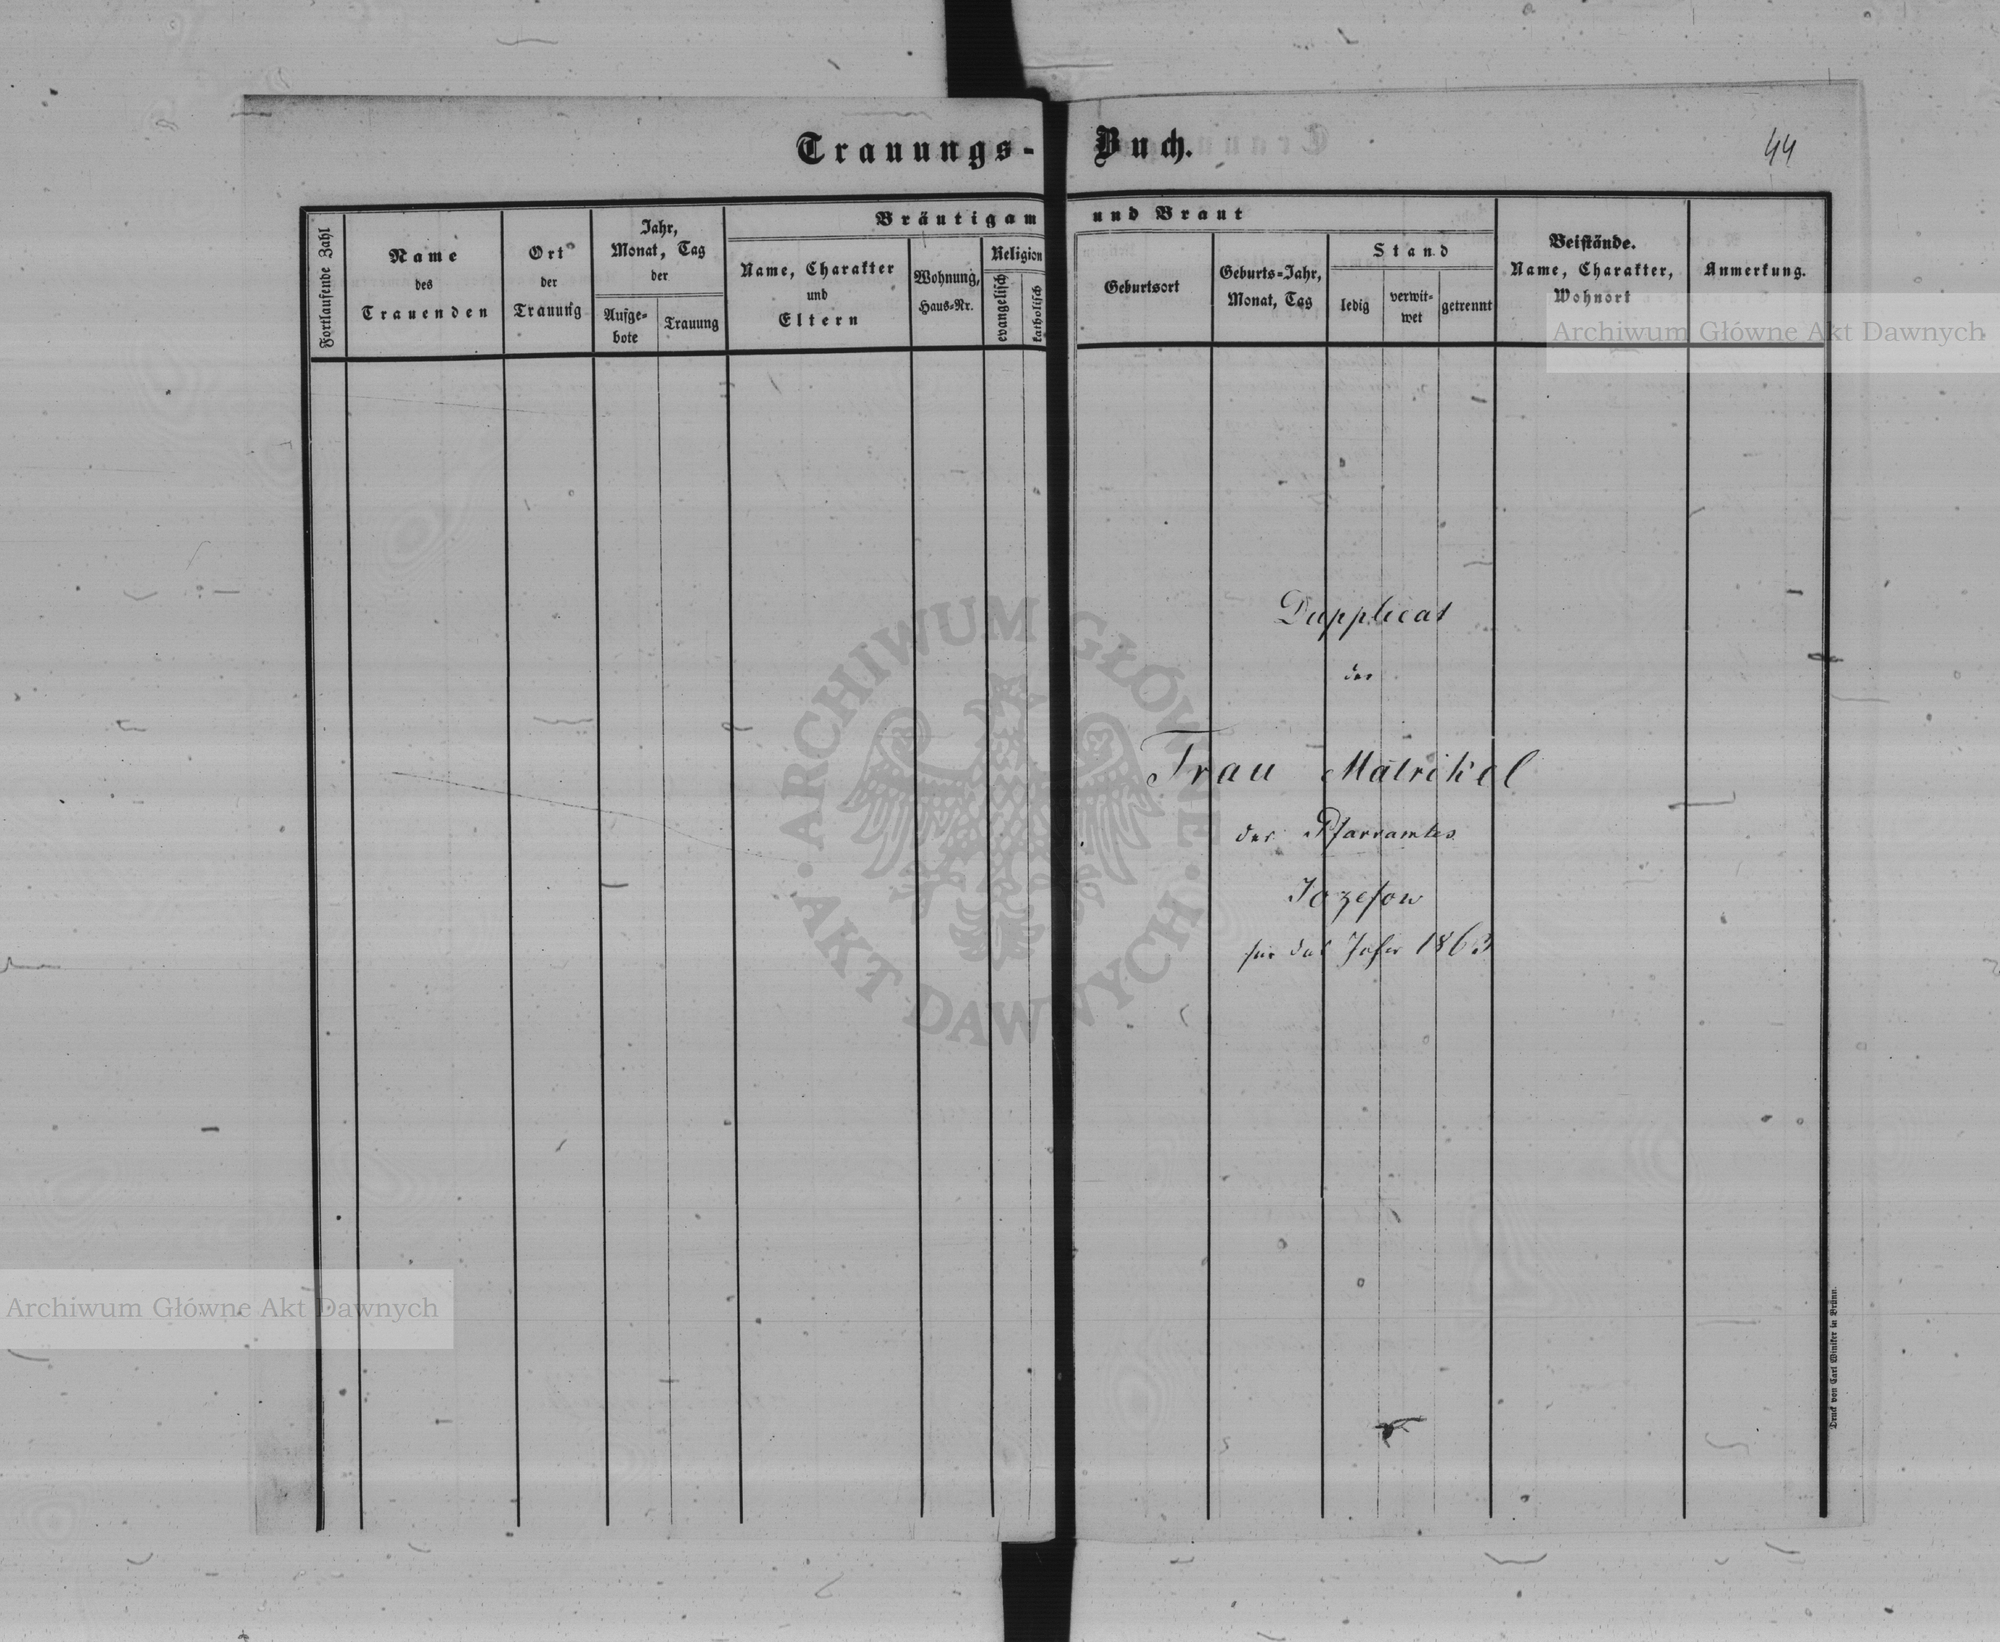 Trauungs-Buch.
44
Fortlaufende Zahl
Name
des
Trauenden
Ort
der
Trauung
Jahr,
Monat, Tag
der
Aufge-
bote
Trauung
Bräutigam und Braut
Name, Charakter
und
Eltern
Wohnung,
Haus-Nr.
Religion
evangelisch
katholisch
Geburtsort
Geburts-Jahr,
Monat, Tag
Stand
ledig
verwit-
wet
getrennt
Beistände.
Name, Charakter,
Wohnort
Anmerkung.
Archiwum Główne Akt Dawnych
Dupplicat
der
Trau Matrikel
des Pfarramtes
Jozefow
für das Jahr 1863
ARCHIWUM GŁÓWNE · AKT DAWNYCH ·
Archiwum Główne Akt Dawnych
Druck von Carl Winiker in Brünn.